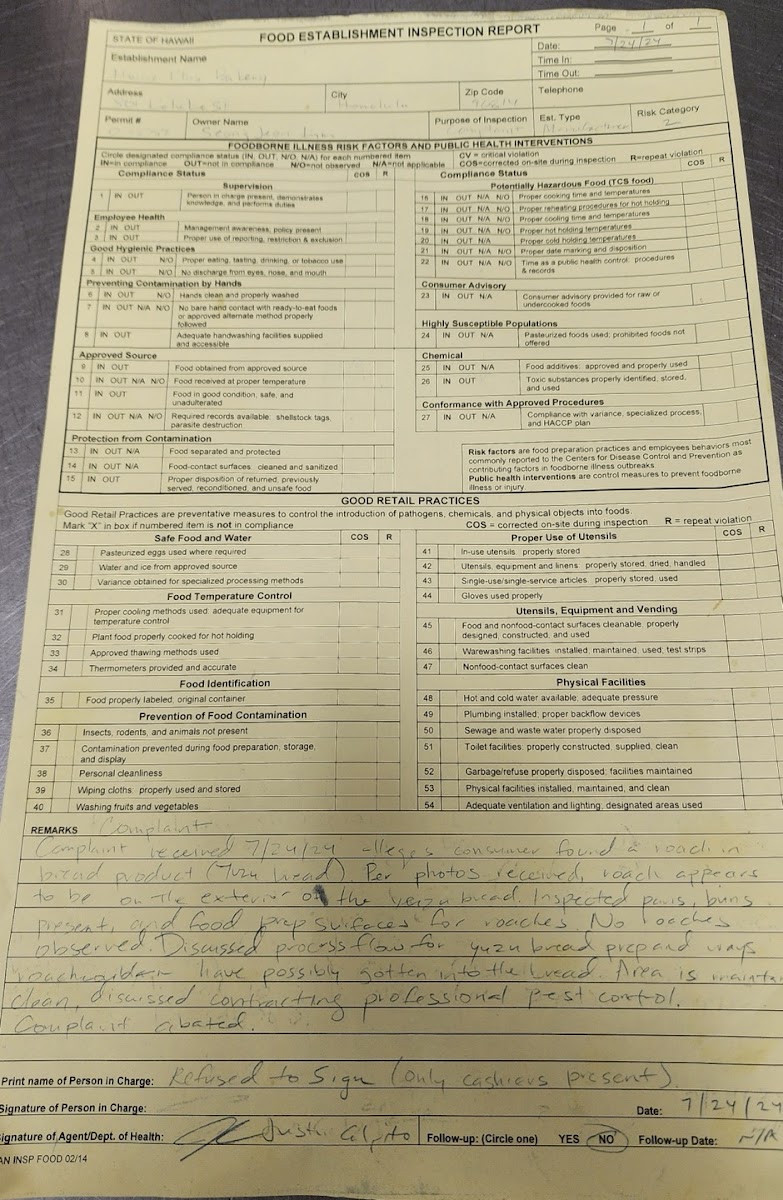 STATE OF HAWAII
FOOD ESTABLISHMENT INSPECTION REPORT
Page 1 of 1
Date: 7/24/24
Establishment Name
Bakery
Time In:
Time Out:
Address
City
Zip Code
Telephone
St Honolulu
Permit #
Owner Name
Purpose of Inspection
Est. Type
Risk Category
Complaint
Manufacturer
2
FOODBORNE ILLNESS RISK FACTORS AND PUBLIC HEALTH INTERVENTIONS
Circle designated compliance status (IN, OUT, N/O, N/A) for each numbered item
CV = critical violation
IN=in compliance OUT=not in compliance N/O=not observed N/A=not applicable COS=corrected on-site during inspection R=repeat violation
Compliance Status COS R
Supervision
1 IN OUT Person in charge present, demonstrates
knowledge, and performs duties
Employee Health
2 IN OUT Management awareness, policy present
3 IN OUT Proper use of reporting, restriction & exclusion
Good Hygienic Practices
4 IN OUT N/O Proper eating, tasting, drinking, or tobacco use
5 IN OUT N/O No discharge from eyes, nose, and mouth
Preventing Contamination by Hands
6 IN OUT N/O Hands clean and properly washed
7 IN OUT N/A N/O No bare hand contact with ready-to-eat foods
or approved alternate method properly
followed
8 IN OUT Adequate handwashing facilities supplied
and accessible
Approved Source
9 IN OUT Food obtained from approved source
10 IN OUT N/A N/O Food received at proper temperature
11 IN OUT Food in good condition, safe, and
unadulterated
12 IN OUT N/A N/O Required records available: shellstock tags,
parasite destruction
Protection from Contamination
13 IN OUT N/A Food separated and protected
14 IN OUT N/A Food-contact surfaces: cleaned and sanitized
15 IN OUT Proper disposition of returned, previously
served, reconditioned, and unsafe food
Compliance Status COS R
Potentially Hazardous Food (TCS food)
16 IN OUT N/A N/O Proper cooking time and temperatures
17 IN OUT N/A N/O Proper reheating procedures for hot holding
18 IN OUT N/A N/O Proper cooling time and temperatures
19 IN OUT N/A N/O Proper hot holding temperatures
20 IN OUT N/A Proper cold holding temperatures
21 IN OUT N/A N/O Proper date marking and disposition
22 IN OUT N/A N/O Time as a public health control: procedures
& records
Consumer Advisory
23 IN OUT N/A Consumer advisory provided for raw or
undercooked foods
Highly Susceptible Populations
24 IN OUT N/A Pasteurized foods used; prohibited foods not
offered
Chemical
25 IN OUT N/A Food additives: approved and properly used
26 IN OUT Toxic substances properly identified, stored,
and used
Conformance with Approved Procedures
27 IN OUT N/A Compliance with variance, specialized process,
and HACCP plan
Risk factors are food preparation practices and employees behaviors most
commonly reported to the Centers for Disease Control and Prevention as
contributing factors in foodborne illness outbreaks.
Public health interventions are control measures to prevent foodborne
illness or injury.
GOOD RETAIL PRACTICES
Good Retail Practices are preventative measures to control the introduction of pathogens, chemicals, and physical objects into foods.
Mark "X" in box if numbered item is not in compliance COS = corrected on-site during inspection R = repeat violation
Safe Food and Water COS R
28 Pasteurized eggs used where required
29 Water and ice from approved source
30 Variance obtained for specialized processing methods
Food Temperature Control
31 Proper cooling methods used; adequate equipment for
temperature control
32 Plant food properly cooked for hot holding
33 Approved thawing methods used
34 Thermometers provided and accurate
Food Identification
35 Food properly labeled; original container
Prevention of Food Contamination
36 Insects, rodents, and animals not present
37 Contamination prevented during food preparation, storage,
and display
38 Personal cleanliness
39 Wiping cloths: properly used and stored
40 Washing fruits and vegetables
Proper Use of Utensils COS R
41 In-use utensils: properly stored
42 Utensils, equipment and linens: properly stored, dried, handled
43 Single-use/single-service articles: properly stored, used
44 Gloves used properly
Utensils, Equipment and Vending
45 Food and nonfood-contact surfaces cleanable, properly
designed, constructed, and used
46 Warewashing facilities: installed, maintained, used; test strips
47 Nonfood-contact surfaces clean
Physical Facilities
48 Hot and cold water available; adequate pressure
49 Plumbing installed; proper backflow devices
50 Sewage and waste water properly disposed
51 Toilet facilities: properly constructed, supplied, clean
52 Garbage/refuse properly disposed; facilities maintained
53 Physical facilities installed, maintained, and clean
54 Adequate ventilation and lighting; designated areas used
REMARKS Complaint:
Complaint received 7/24/24 alleges consumer found a roach in
bread product (Yuzu bread). Per photos received, roach appears
to be on the exterior of the yuzu bread. Inspected pans, buns
present, and food prep surfaces for roaches. No roaches
observed. Discussed process flow for yuzu bread prep and ways
roach have possibly gotten into the bread. Area is mainta
clean, discussed contracting professional pest control.
Complaint abated.
Print name of Person in Charge: Refused to Sign (only cashiers present).
Signature of Person in Charge: Date: 7/24/24
Signature of Agent/Dept. of Health: Justin Follow-up: (Circle one) YES NO Follow-up Date: N/A
AN INSP FOOD 02/14